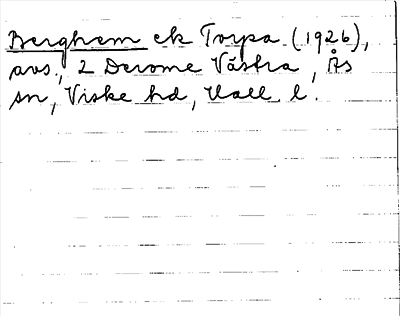 Berghem ek Torpa (1926),
avs., 2 Derome Västra, Ås
sn, Viske hd, Hall. l.